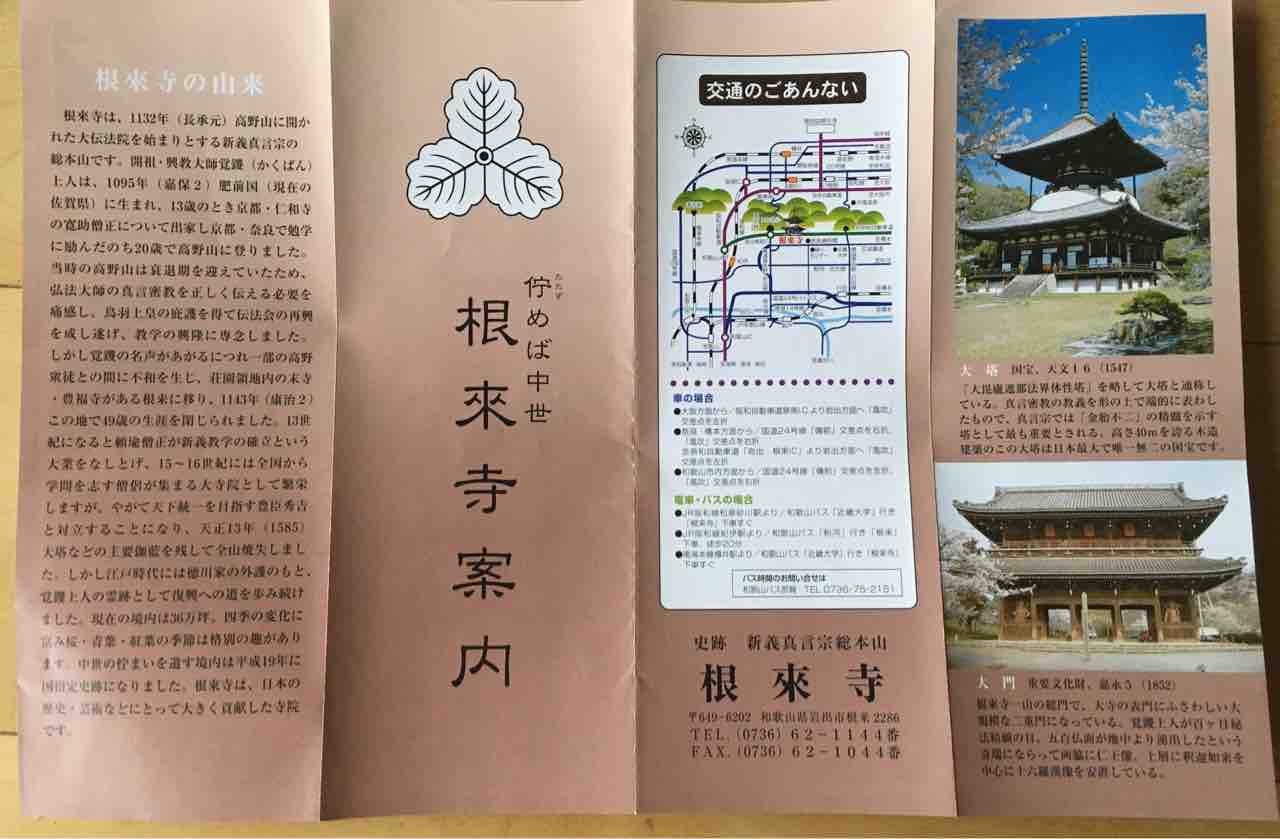 根來寺の由来
根來寺は、1132年（長承元）高野山に開か
れた大伝法院を始まりとする新義真言宗の
総本山です。開祖・興教大師覚鑁（かくばん）
上人は、1095年（嘉保２）肥前国（現在の
佐賀県）に生まれ、13歳のとき京都・仁和寺
の寛助僧正について出家し京都・奈良で勉学
に励んだのち20歳で高野山に登りました。
当時の高野山は衰退期を迎えていたため、
弘法大師の真言密教を正しく伝える必要を
痛感し、鳥羽上皇の庇護を得て伝法会の再興
を成し遂げ、教学の興隆に専念しました。
しかし覚鑁の名声があがるにつれ一部の高野
衆徒との間に不和を生じ、荘園領地内の末寺
・豊福寺がある根来に移り、1143年（康治２）
この地で49歳の生涯を閉じられました。13世
紀になると頼瑜僧正が新義教学の確立という
大業をなしとげ、15～16世紀には全国から
学問を志す僧侶が集まる大寺院として繁栄
しますが、やがて天下統一を目指す豊臣秀吉
と対立することになり、天正13年（1585）
大塔などの主要伽藍を残して全山焼失しまし
た。しかし江戸時代には徳川家の外護のもと、
覚鑁上人の霊跡として復興への道を歩み続け
ました。現在の境内は36万坪。四季の変化に
富み桜・青葉・紅葉の季節は格別の趣があり
ます。中世の佇まいを遺す境内は平成19年に
国指定史跡になりました。根來寺は、日本の
歴史・芸術などにとって大きく貢献した寺院
です。
たたず
佇めば中世
根來寺案内
交通のごあんない
根來寺
車の場合
●大阪方面から／阪和自動車道泉南ICより岩出方面へ「風吹」
交差点を左折
●奈良・橋本方面から／国道24号線「備前」交差点を右折、
「風吹」交差点を右折
京奈和自動車道「岩出　根来IC」より岩出方面へ「風吹」
交差点を左折
●和歌山市内方面から／国道24号線「備前」交差点を左折、
「風吹」交差点を右折
電車・バスの場合
●JR阪和線和泉砂川駅より／和歌山バス「近畿大学」行き
「根来寺」下車すぐ
●JR阪和線紀伊駅より／和歌山バス「粉河」行き「根来」
下車、徒歩20分
●南海本線樽井駅より／和歌山バス「近畿大学」行き「根来寺」
下車すぐ
バス時間のお問い合せは
和歌山バス那賀　TEL 0736-75-2151
史跡　新義真言宗総本山
根來寺
〒649-6202　和歌山県岩出市根来2286
TEL.（0736）62－1144番
FAX.（0736）62－1044番
大塔　国宝、天文１６（1547）
「大毘盧遮那法界体性塔」を略して大塔と通称し
ている。真言密教の教義を形の上で端的に表わし
たもので、真言宗では「金胎不二」の精髄を示す
塔として最も重要とされる。高さ40mを誇る木造
建築のこの大塔は日本最大で唯一無二の国宝です。
大門　重要文化財、嘉永５（1852）
根來寺一山の総門で、大寺の表門にふさわしい大
規模な二重門になっている。覚鑁上人が百ヶ日秘
法結願の日、五百仏画が地中より湧出したという
奇瑞にならって両脇に仁王像、上層に釈迦如来を
中心に十六羅漢像を安置している。